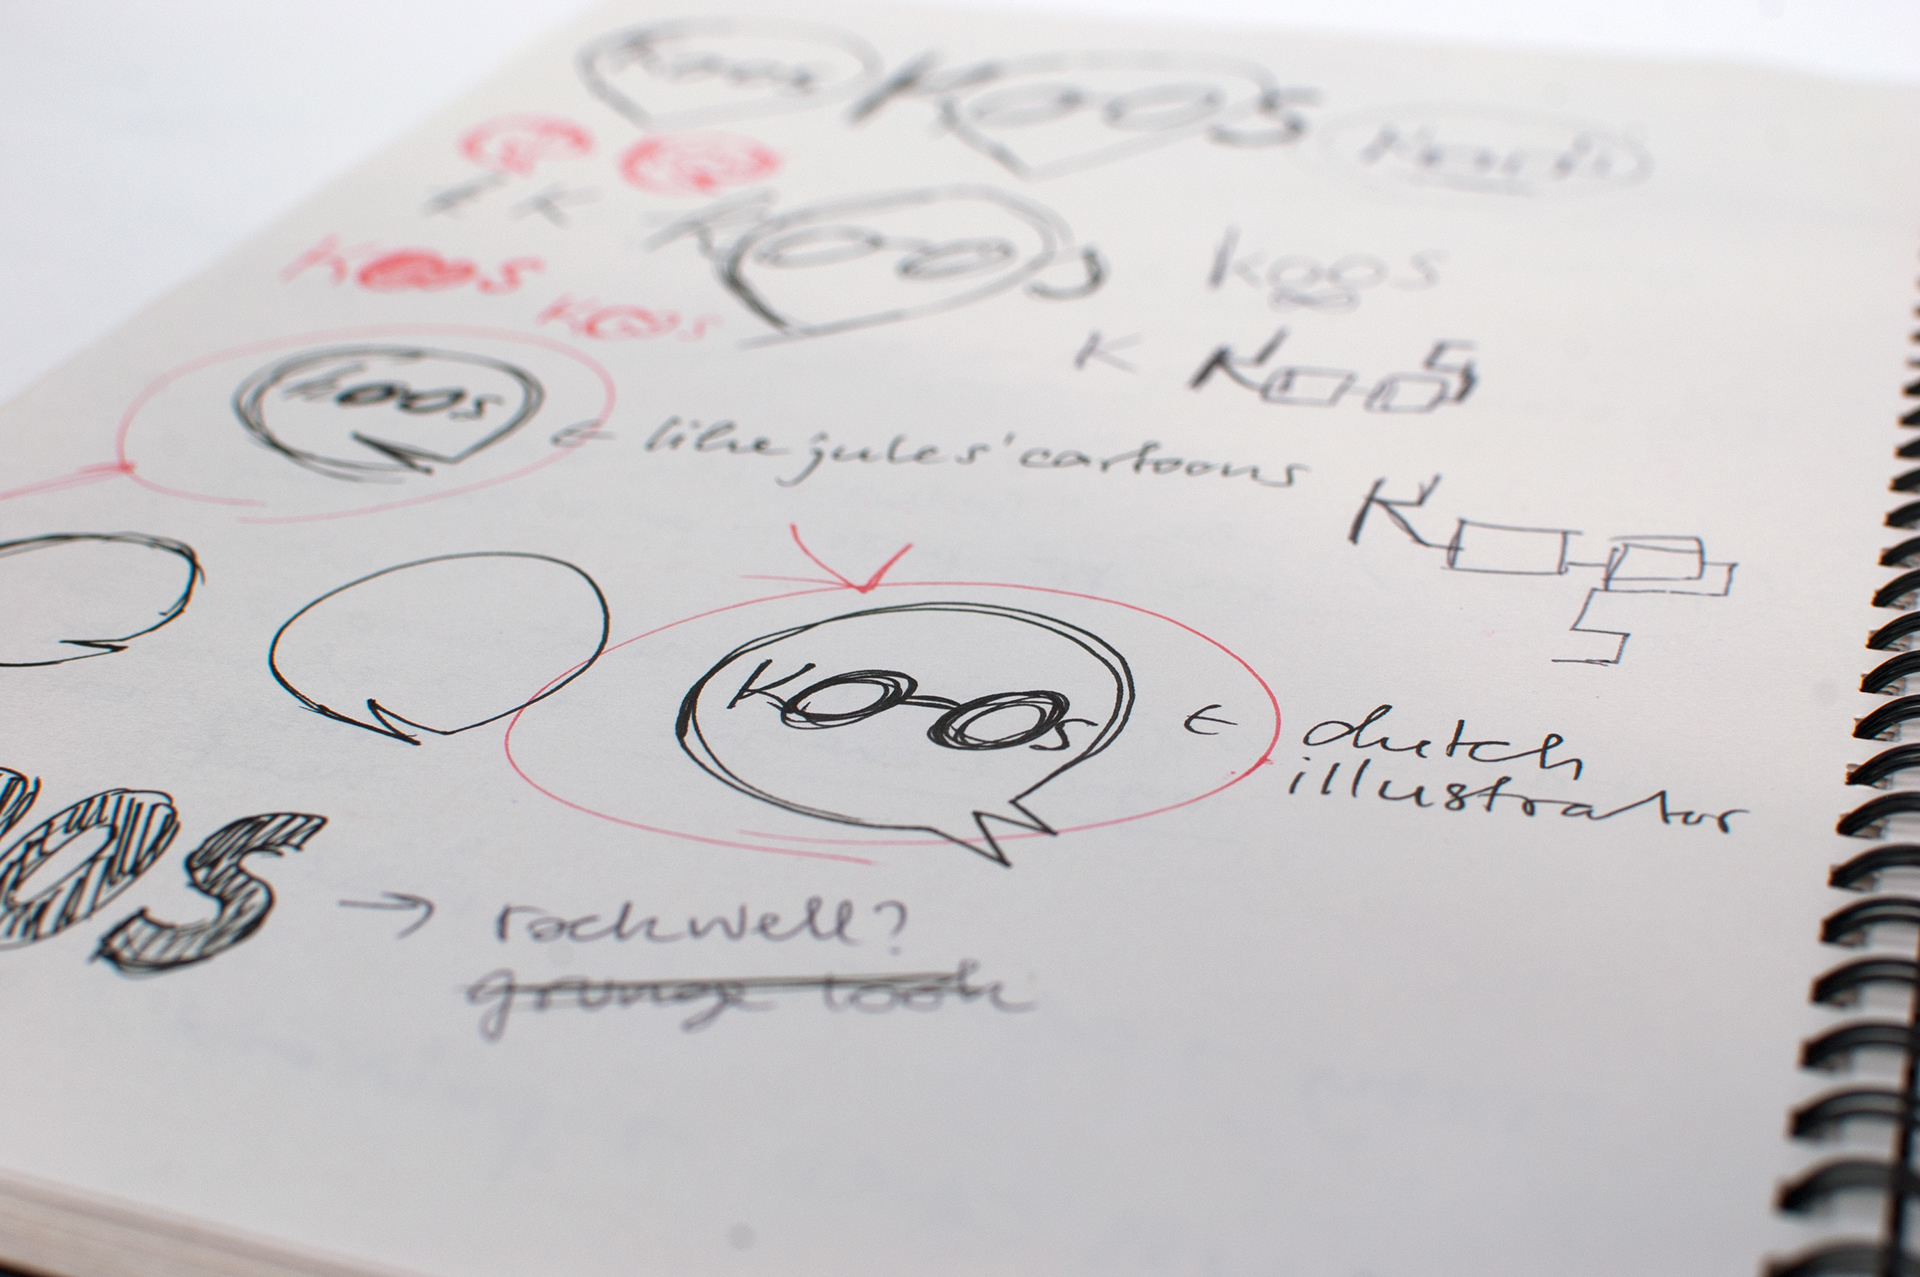 Koos
KOOS
K
KOOS
koos
KOOS
KOOS
K KOOS
koos
← like jules' cartoons
KOOS
KOOS
← dutch
illustrator
OS → rockwell?
grunge look